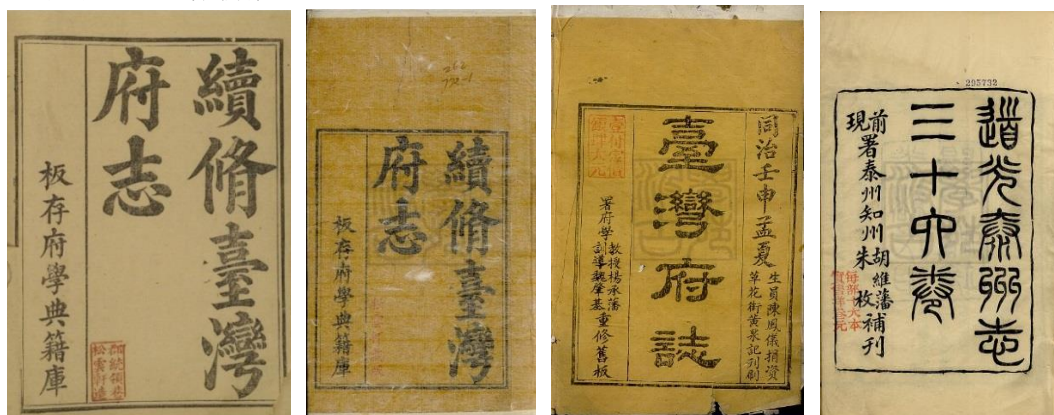 續脩臺灣
府志
板存府學典籍庫
續脩臺灣
府志
板存府學典籍庫
同治壬申孟夏
生員陳鳳儀捐資
草花街黃泉記刊刷
臺灣府誌
署府學
教授楊承藩
訓導魏肇基
重修舊板
295732
道光泰州志
三十六卷
前署泰州知州胡維藩
現
朱枚
補刊
每部六大本